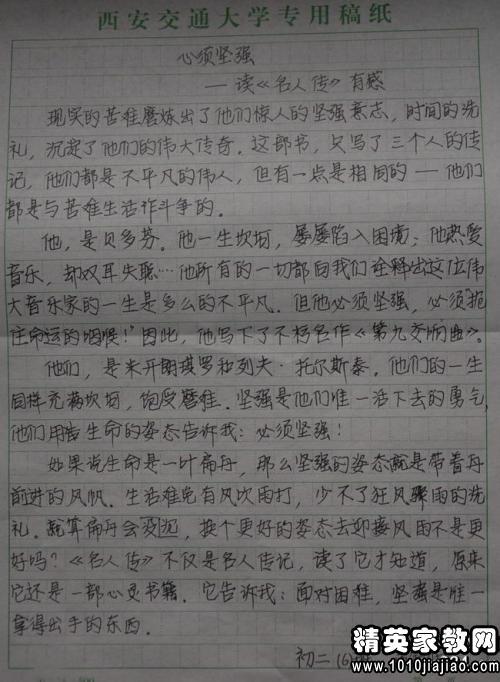 西安交通大学专用稿纸
必须坚强
——读《名人传》有感
现实的苦难磨炼出了他们惊人的坚强意志，时间的洗
礼，沉淀了他们的伟大传奇。这部书，只写了三个人的传
记，他们都是不平凡的伟人，但有一点是相同的——他们
都是与苦难生活作斗争的。
他，是贝多芬。他一生坎坷，屡屡陷入困境；他热爱
音乐，却双耳失聪…他所有的一切都向我们诠释出这位伟
大音乐家的一生是多么的不平凡。但他必须坚强，必须“扼
住命运的咽喉！”因此，他写下了不朽名作《第九交响曲》。
他们，是米开朗琪罗和列夫·托尔斯泰。他们的一生
同样充满坎坷，饱受磨难。坚强是他们唯一活下去的勇气，
他们用着生命的姿态告诉我：必须坚强！
如果说生命是一叶扁舟，那么坚强的姿态就是带着舟
前进的风帆。生活难免有风吹雨打，少不了狂风骤雨的洗
礼。就算扁舟会没迹，换个更好的姿态去迎接风雨不是更
好吗？《名人传》不仅是名人传记，读了它才知道，原来
它还是一部心灵书籍。它告诉我：面对困难，坚强是唯一
拿得出手的东西。
初二(6)
精英家教网
www.1010jiajiao.com